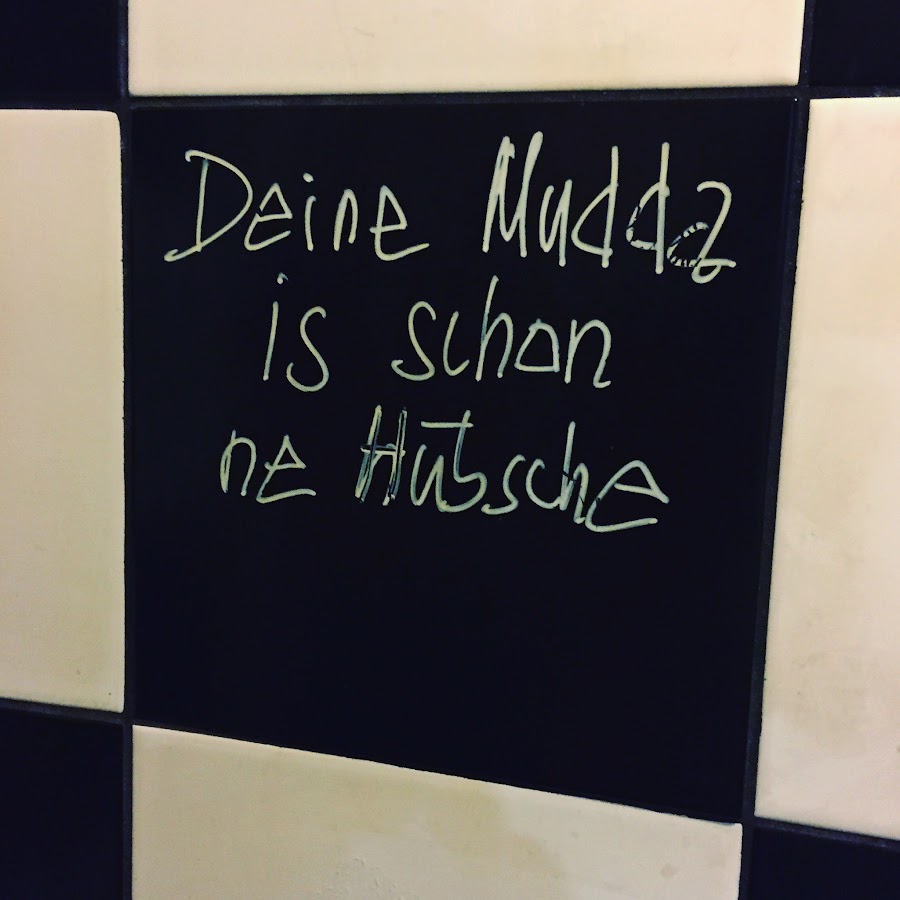 Deine Mudda
is schon
ne Hübsche